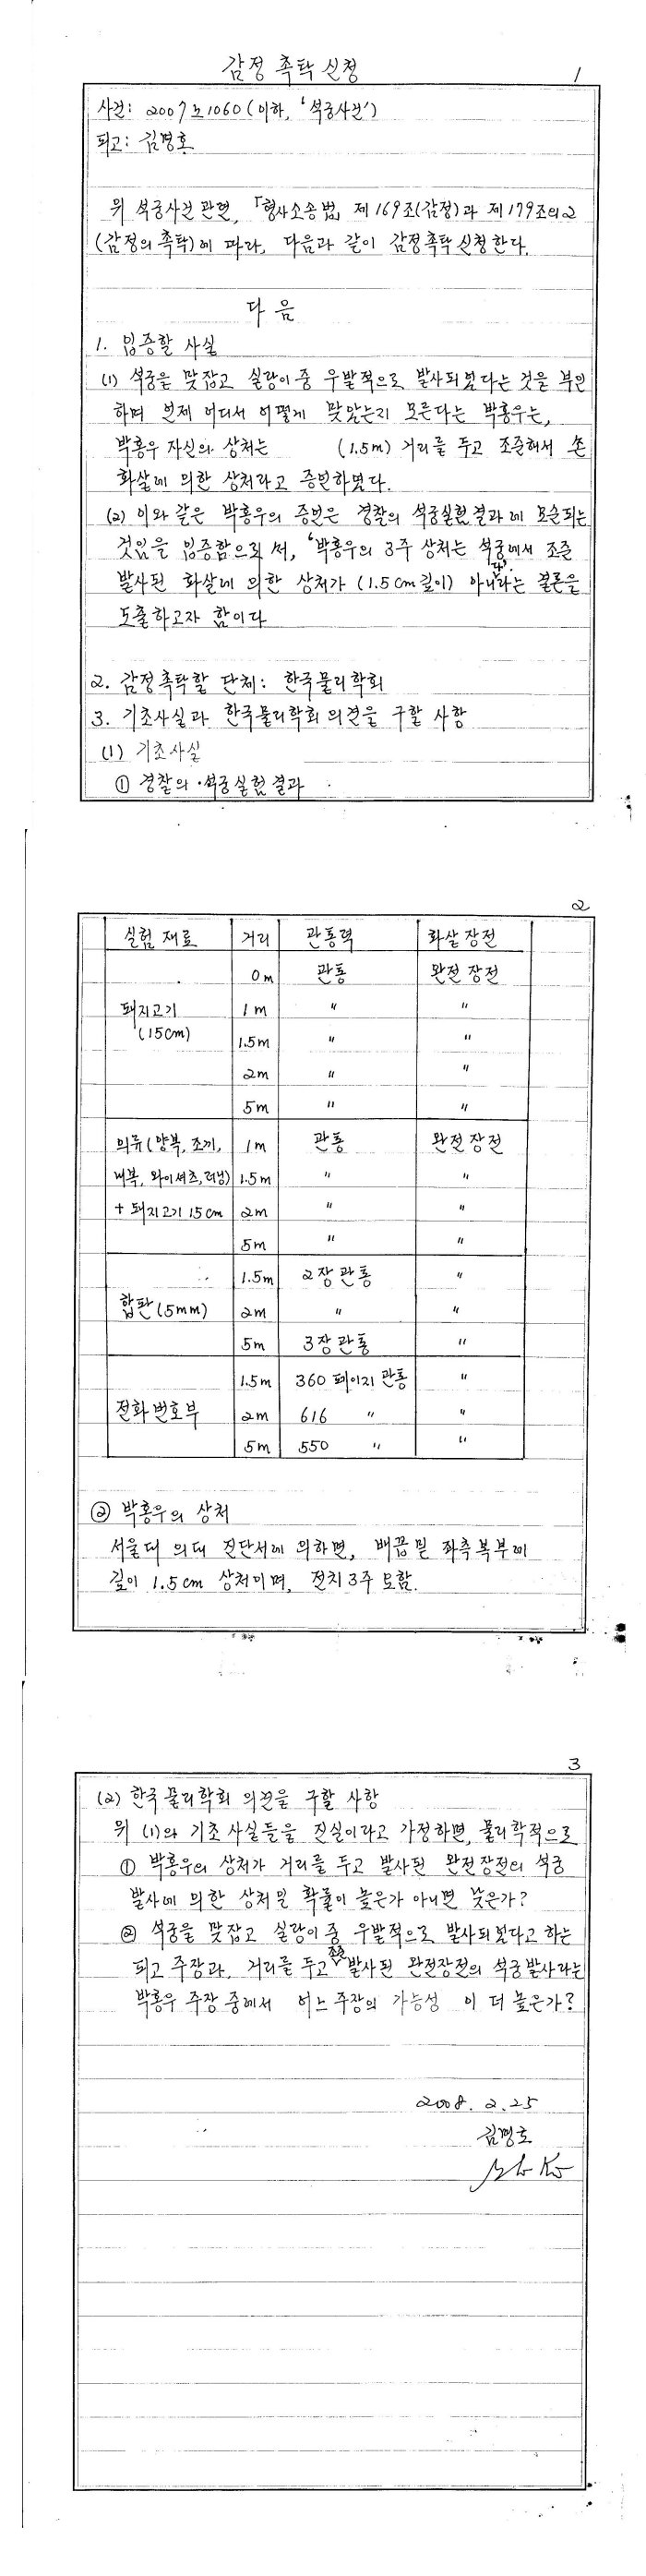 감정 촉탁 신청
1
사건: 2007노1060 (이하, '석궁사건')
피고: 김명호
위 석궁사건 관련, 「형사소송법」 제169조(감정)과 제179조의2
(감정의 촉탁)에 따라, 다음과 같이 감정촉탁 신청한다.
다음
1. 입증할 사실
(1) 석궁을 맞잡고 실랑이 중 우발적으로 발사되었다는 것을 부인
하며 언제 어디서 어떻게 맞았는지 모른다는 박홍우는,
박홍우 자신의 상처는 (1.5m) 거리를 두고 조준해서 쏜
화살에 의한 상처라고 증언하였다.
(2) 이와 같은 박홍우의 증언은 경찰의 석궁실험 결과에 모순되는
것임을 입증함으로써, '박홍우의 3주 상처는 석궁에서 조준
발사된 화살에 의한 상처가 (1.5cm 깊이) 아니다'라는 결론을
도출하고자 함이다
2. 감정촉탁할 단체: 한국물리학회
3. 기초사실과 한국물리학회 의견을 구할 사항
(1) 기초사실
① 경찰의 석궁실험 결과
2
실험 재료 거리 관통력 화살 장전
0m 관통 완전 장전
돼지고기 1m 〃 〃
(15cm) 1.5m 〃 〃
2m 〃 〃
5m 〃 〃
의류(양복, 조끼, 1m 관통 완전 장전
내복, 와이셔츠, 러닝) 1.5m 〃 〃
+ 돼지고기 15cm 2m 〃 〃
5m 〃 〃
1.5m 2장 관통 〃
합판(5mm) 2m 〃 〃
5m 3장 관통 〃
1.5m 360 페이지 관통 〃
전화 번호부 2m 616 〃 〃
5m 550 〃 〃
② 박홍우의 상처
서울대 의대 진단서에 의하면, 배꼽밑 좌측 복부에
깊이 1.5cm 상처이며, 전치 3주 요함.
3
(2) 한국 물리학회 의견을 구할 사항
위 (1)의 기초 사실들을 진실이라고 가정하면, 물리학적으로
① 박홍우의 상처가 거리를 두고 발사된 완전장전의 석궁
발사에 의한 상처일 확률이 높은가 아니면 낮은가?
② 석궁을 맞잡고 실랑이 중 우발적으로 발사되었다고 하는
피고 주장과, 거리를 두고 조준 발사된 완전장전의 석궁발사라는
박홍우 주장 중에서 어느 주장의 가능성 이 더 높은가?
2008. 2. 25
김명호